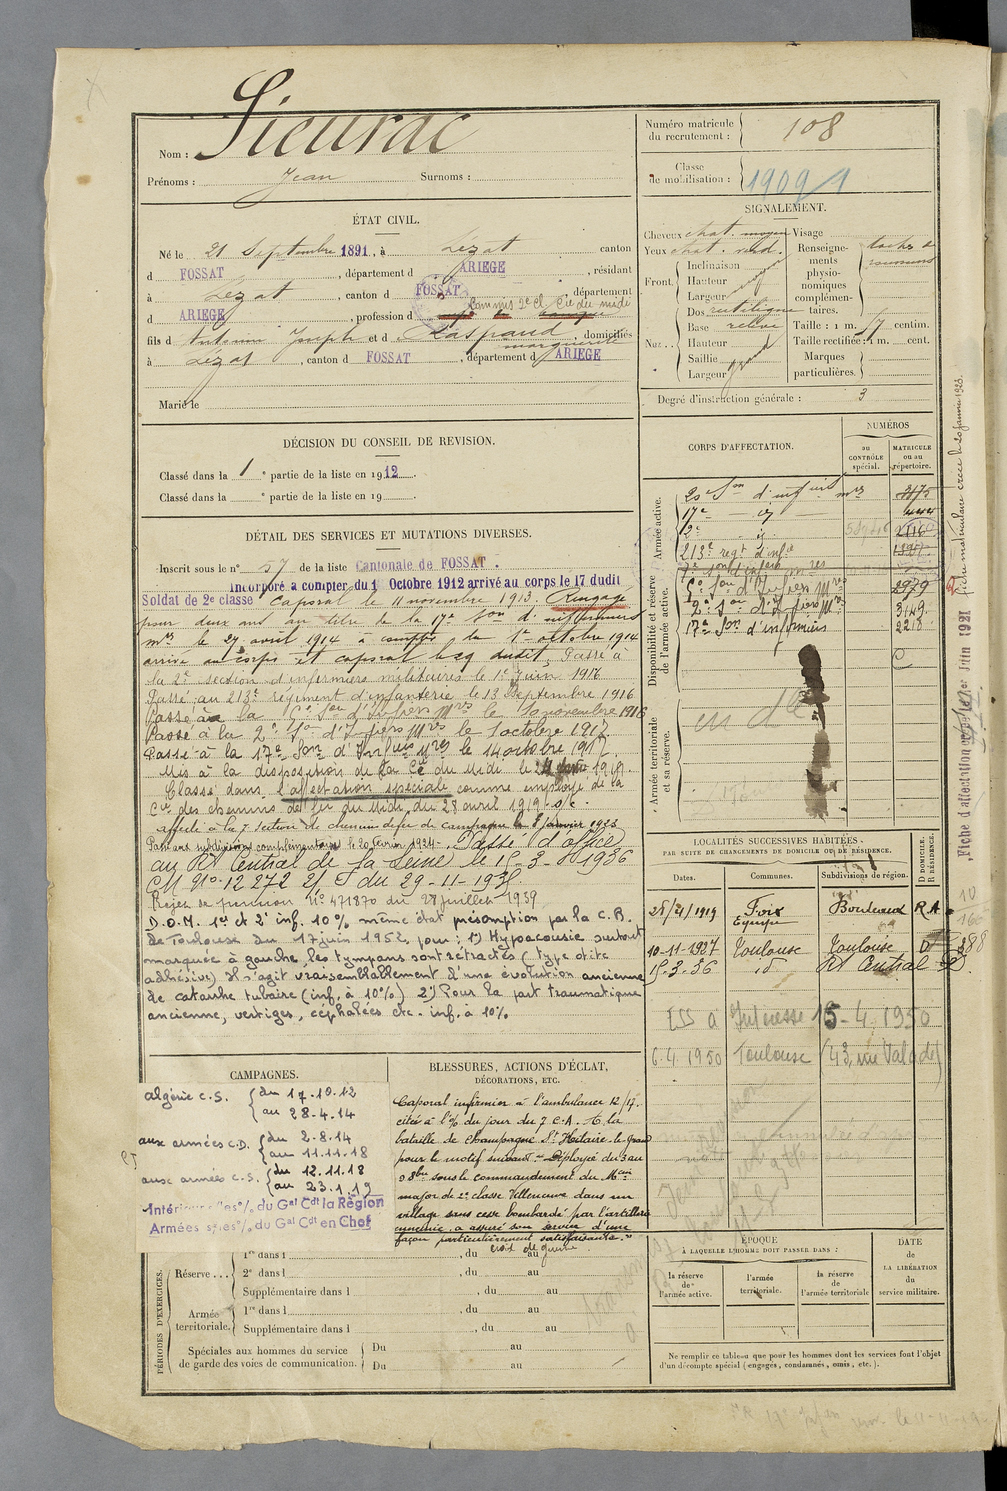 Nom : Sieurac
Prénoms : Jean Surnoms :
Numéro matricule du recrutement : 108
Classe de mobilisation : 1909
ÉTAT CIVIL.
Né le 21 Septembre 1891, à Lézat canton
d FOSSAT, département d ARIEGE, résidant
à Lézat, canton d FOSSAT, département
d ARIEGE, profession d Commis 2e Cl. Cie du midi
fils d Antonin Joseph et d Raspaud marguerite, domiciliés
à Lézat, canton d FOSSAT, département d ARIEGE
Marié le
SIGNALEMENT.
Cheveux chat. moyen
Yeux chat. verd.
Front. Inclinaison
Hauteur moyen
Largeur
Nez. Dos rectiligne
Base relevé
Hauteur
Saillie
Largeur grand
Visage
Renseignements physionomiques complémentaires. taches de
Taille : 1 m. 57 centim.
Taille rectifiée : 1 m. cent.
Marques particulières.
Degré d'instruction générale : 3
DÉCISION DU CONSEIL DE REVISION.
Classé dans la 1e partie de la liste en 1912.
Classé dans la e partie de la liste en 19
DÉTAIL DES SERVICES ET MUTATIONS DIVERSES.
Inscrit sous le n° 57 de la liste Cantonale de FOSSAT.
Incorporé a compter du 1 Octobre 1912 arrivé au corps le 17 dudit
Soldat de 2e classe Caporal le 11 novembre 1913. Rengagé
pour deux ans au titre de la 17e Son d'infirmiers
mres le 27 avril 1914 à compter du 1er octobre 1914
arrivé au corps et caporal le 29 dudit, Passé à
la 2e section d'infirmiers militaires le 1er Juin 1916
Passé au 213e régiment d'infanterie le 13 Septembre 1916
Passé à la 6e Son d'Infiers Mres le 10 novembre 1916
Passé à la 2e Son d'Infiers Mres le 1 octobre 1917
Passé à la 17e Son d'Infiers Mres le 14 octobre 1917
Mis à la disposition de la Cie du Midi le 1919.
Classé dans l'affectation spéciale comme employé de la
Cie des chemins de fer du Midi, du 28 avril 1919.
affecté à la 7 section de chemin de fer de campagne le 8 janvier 1923
Passé aux subdivisions complémentaires le 20 février 1924. Passé d'office
au Rt Central de la Seine le 15-3-1936
CM No 12272 2/ du 29-11-1935
Rejet de pension No 471870 du 28 juillet 1939
D.O.M. 1er et 2e inf. 10% même état présomption par la C.R.
de Toulouse du 17 juin 1952 pour : 1) Hypoacousie surtout
marquée à gauche, les tympans sont rétractés (type otite
adhésive) Il s'agit vraisemblablement d'une évolution ancienne
de catarrhe tubaire (inf. à 10%) 2) Pour la part traumatique
ancienne, vertiges, céphalées etc. inf. à 10%
CORPS D'AFFECTATION.
NUMÉROS
au CONTRÔLE spécial.
MATRICULE ou au répertoire.
Armée active.
20e Son d'infiers mres 3175
17e id
2e id 2116
213e regt d'infie
7e Son d'infiers mres
Disponibilité et réserve de l'armée active.
6e Son d'Infiers Mres 2979
2e Son d'Infiers Mres 3149
17e Son d'infirmiers 2218
Armée territoriale et sa réserve.
LOCALITÉS SUCCESSIVES HABITÉES,
PAR SUITE DE CHANGEMENTS DE DOMICILE OU DE RÉSIDENCE.
Dates. Communes. Subdivisions de région. D DOMICILE. R RÉSIDENCE.
28/4/1919 Foix Equipe Bordeaux R A
10-11-1927 Toulouse Toulouse D
15-3-36 id Rt Central D.
15-4-1950
6.4.1950 Toulouse (43, rue Valade)
Fiche d'affectation
1er Juin 1921
fiche matriculaire créée le 20 janvier 1923.
CAMPAGNES.
algérie C.S. du 17.10.12
au 28.4.14
aux armées C.D. du 2.8.14
au 11.11.18
aux armées C.S. du 12.11.18
au 23.1.19
Intérieur du Gal Cdt la Région
Armées du Gal Cdt en Chef
BLESSURES, ACTIONS D'ÉCLAT,
DÉCORATIONS, ETC.
Caporal infirmier à l'ambulance 12/17.
cité à l'O/ du jour du 7 C.A. A la
bataille de Champagne St Hilaire-le-Grand
pour le motif suivant "Déployé du 3 au
8 8bre sous le commandement du Mcin
major de 2e classe Villeneuve dans un
village sans cesse bombardé par l'artillerie
ennemie, a assuré son service d'une
façon particulièrement satisfaisante."
croix de guerre
PÉRIODES D'EXERCICES.
Réserve... 1re dans l , du au
2e dans l , du au
Supplémentaire dans l , du au
Armée territoriale. 1re dans l , du au
Supplémentaire dans l , du au
Spéciales aux hommes du service de garde des voies de communication. Du au
Du au
ÉPOQUE
À LAQUELLE L'HOMME DOIT PASSER DANS :
la réserve de l'armée active.
l'armée territoriale.
la réserve de l'armée territoriale
DATE de LA LIBÉRATION du service militaire.
Ne remplir ce tableau que pour les hommes dont les services font l'objet
d'un décompte spécial (engagés, condamnés, omis, etc.).